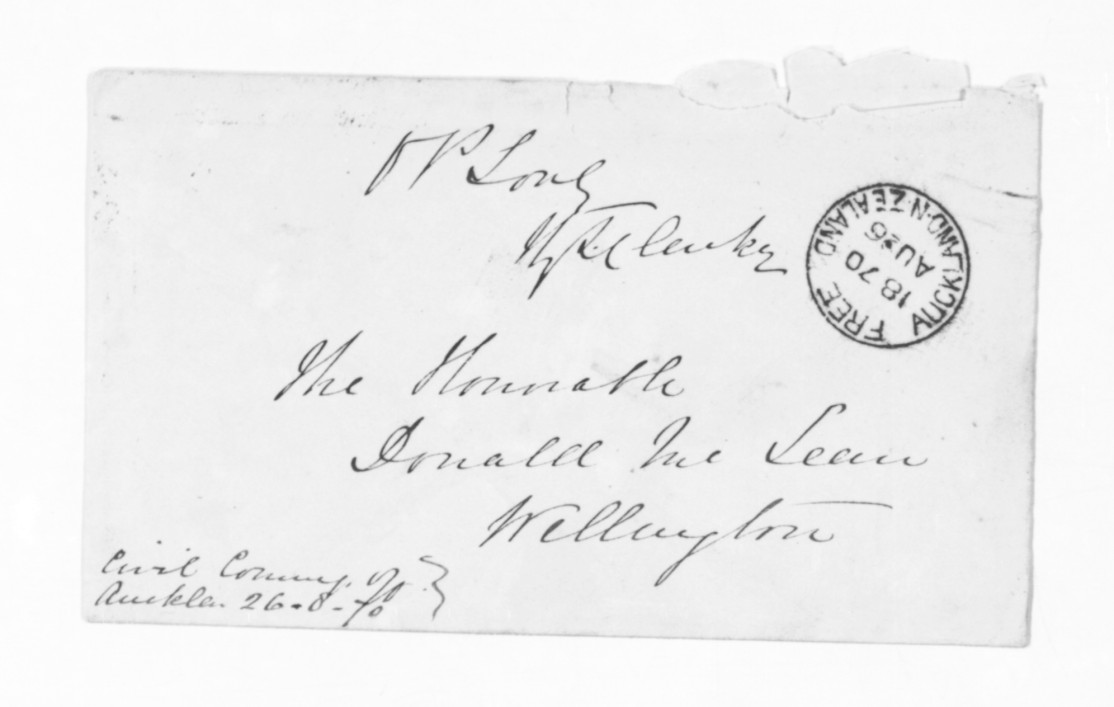 OP Only
H.T. Clarke
FREE AUCKLAND·N·ZEALAND
AU 26
18 70
The Honorable
Donald Mc Lean
Wellington
Civil Commrs. Off
Aucklan 26-8-70